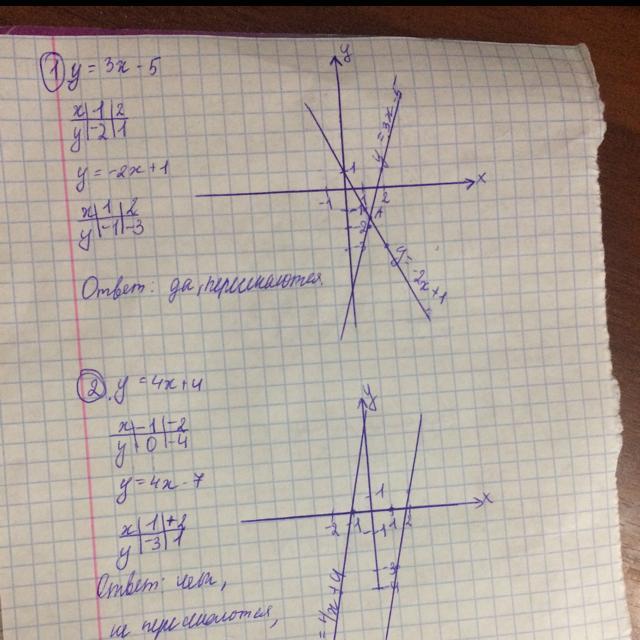 1 y = 3x - 5
x 1 2
y -2 1
y = -2x + 1
x 1 2
y -1 -3
Ответ: да, пересекаются
y
x
1
-1
1
2
-1
-2
-3
A
y = 3x - 5
y = -2x + 1
2. y = 4x + 4
x -1 -2
y 0 -4
y = 4x - 7
x 1 +2
y -3 1
Ответ:
не пересекаются,
y
x
1
-2
-1
1
2
-1
= 4x + 4